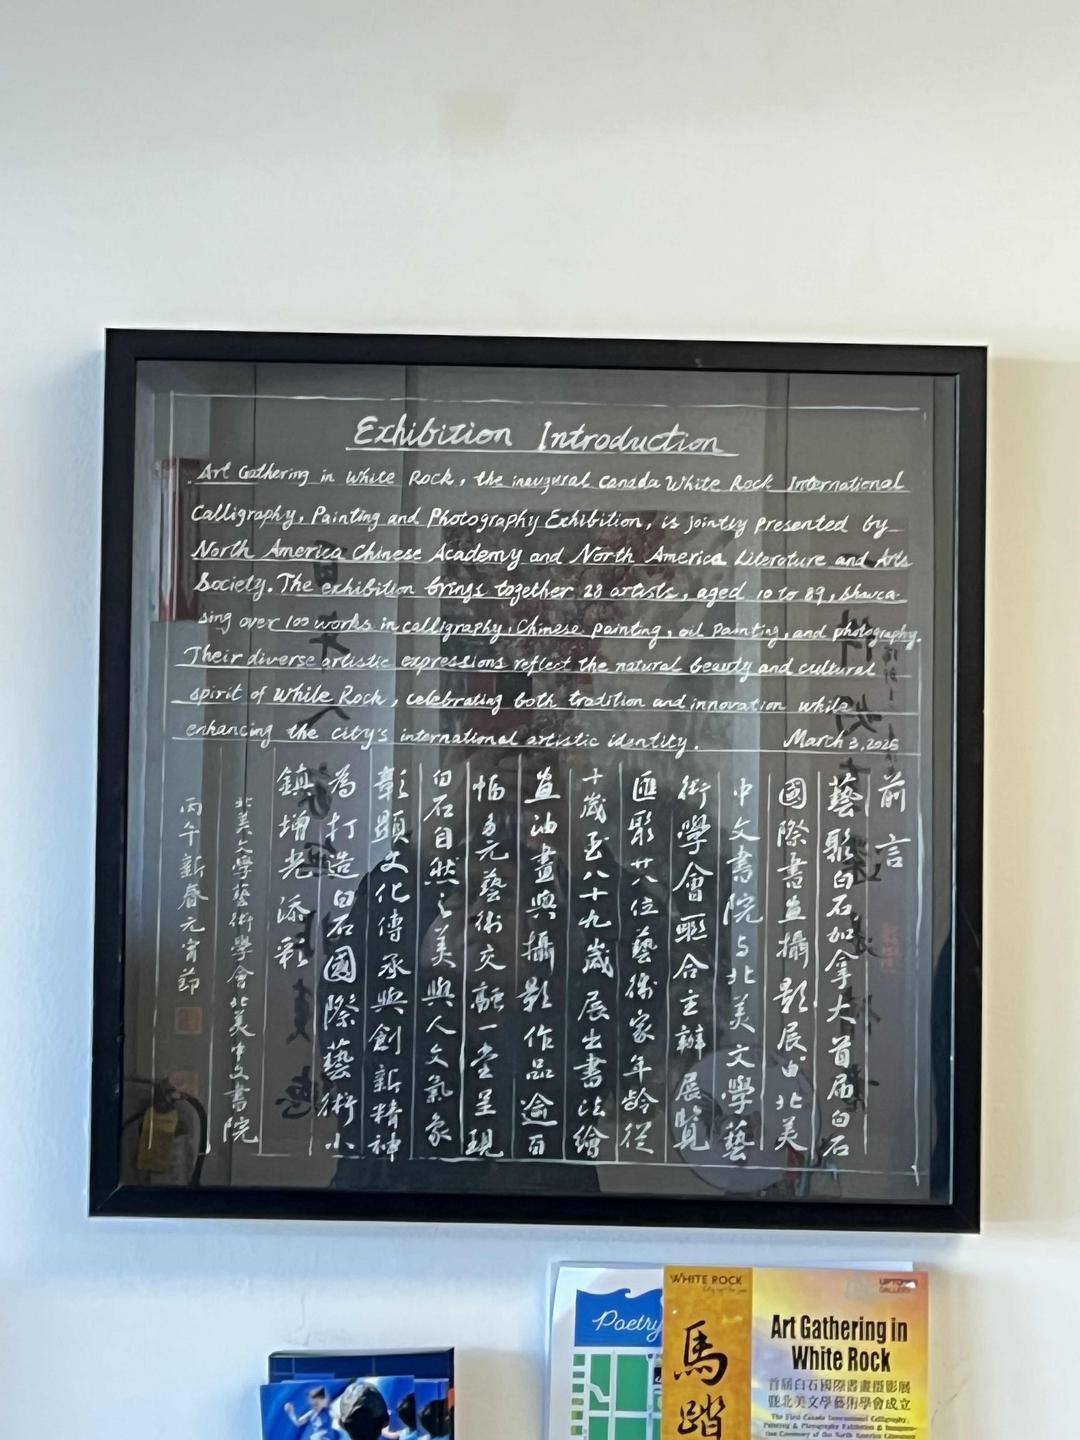 Exhibition Introduction
Art Gathering in White Rock, the inaugural Canada White Rock International
Calligraphy, Painting and Photography Exhibition, is jointly presented by
North America Chinese Academy and North America Literature and Arts
Society. The exhibition brings together 28 artists, aged 10 to 89, showca-
sing over 100 works in calligraphy, Chinese painting, oil painting, and photography.
Their diverse artistic expressions reflect the natural beauty and cultural
spirit of White Rock, celebrating both tradition and innovation while
enhancing the city's international artistic identity.
March 3, 2026
前言
藝聚白石加拿大首屆白石
國際書畫攝影展由北美
中文書院与北美文學藝
術學會聯合主辦 展覽
匯聚廿八位藝術家年齡從
十歲至八十九歲 展出書法繪
畫油畫與攝影作品逾百
幅多元藝術交融一堂呈現
白石自然之美與人文氣象
彰顯文化傳承與創新精神
為打造白石國際藝術小
鎮增光添彩
北美文學藝術學會北美中文書院
丙午新春元宵節
Poetry
WHITE ROCK
馬
踏
UPTOWN
GALLERY
Art Gathering in
White Rock
首屆白石國際書畫攝影展
暨北美文學藝術學會成立
The First Canada International Calligraphy,
Painting & Photography Exhibition & Inaugura-
tion Ceremony of the North America Literature